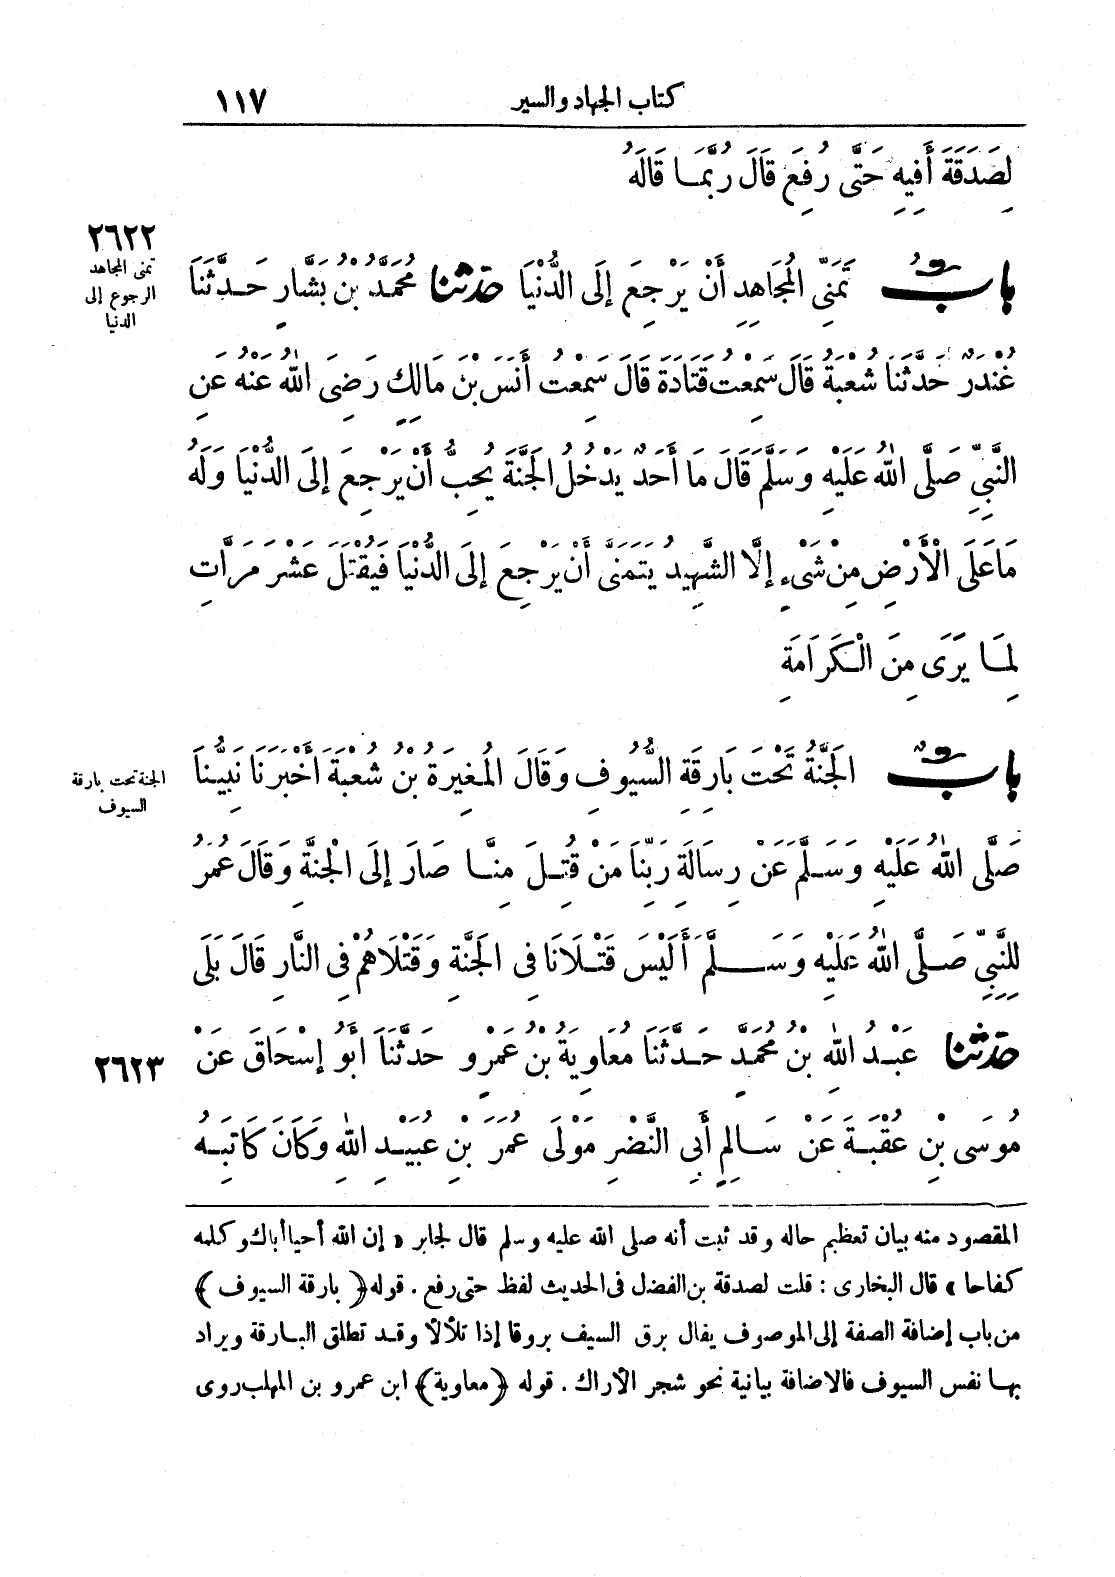 كتاب الجهاد والسير ١١٧
لِصَدَقَةَ أَفِيهِ حَتَّى رُفِعَ قَالَ رُبَّمَا قَالَهُ
٢٦٢٢
تمنى المجاهد
الرجوع إلى
الدنيا
بابٌ تَمَنِّى الْمُجَاهِدِ أَنْ يَرْجِعَ إِلَى الدُّنْيَا حدثنا مُحَمَّدُ بْنُ بَشَّارٍ حَدَّثَنَا
غُنْدَرٌ حَدَّثَنَا شُعْبَةُ قَالَ سَمِعْتُ قَتَادَةَ قَالَ سَمِعْتُ أَنَسَ بْنَ مَالِكٍ رَضِىَ اللهُ عَنْهُ عَنِ
النَّبِيِّ صَلَّى اللهُ عَلَيْهِ وَسَلَّمَ قَالَ مَا أَحَدٌ يَدْخُلُ الْجَنَّةَ يُحِبُّ أَنْ يَرْجِعَ إِلَى الدُّنْيَا وَلَهُ
مَا عَلَى الْأَرْضِ مِنْ شَىْءٍ إِلَّا الشَّهِيدُ يَتَمَنَّى أَنْ يَرْجِعَ إِلَى الدُّنْيَا فَيُقْتَلَ عَشْرَ مَرَّاتٍ
لِمَا يَرَى مِنَ الْكَرَامَةِ
بابٌ الْجَنَّةُ تَحْتَ بَارِقَةِ السُّيُوفِ وَقَالَ الْمُغِيرَةُ بْنُ شُعْبَةَ أَخْبَرَنَا نَبِيُّنَا
الجنة تحت بارقة
السيوف
صَلَّى اللهُ عَلَيْهِ وَسَلَّمَ عَنْ رِسَالَةِ رَبِّنَا مَنْ قُتِلَ مِنَّا صَارَ إِلَى الْجَنَّةِ وَقَالَ عُمَرُ
لِلنَّبِيِّ صَلَّى اللهُ عَلَيْهِ وَسَلَّمَ أَلَيْسَ قَتْلَانَا فِى الْجَنَّةِ وَقَتْلَاهُمْ فِى النَّارِ قَالَ بَلَى
حدثنا عَبْدُ اللهِ بْنُ مُحَمَّدٍ حَدَّثَنَا مُعَاوِيَةُ بْنُ عَمْرٍو حَدَّثَنَا أَبُو إِسْحَاقَ عَنْ
٢٦٢٣
مُوسَى بْنِ عُقْبَةَ عَنْ سَالِمٍ أَبِى النَّضْرِ مَوْلَى عُمَرَ بْنِ عُبَيْدِ اللهِ وَكَانَ كَاتِبَهُ
المقصود منه بيان تعظيم حاله وقد ثبت أنه صلى الله عليه وسلم قال لجابر «إن الله أحيا أباك وكلمه
كفاحا» قال البخارى : قلت لصدقة بن الفضل فى الحديث لفظ حتى رفع . قوله ﴿بارقة السيوف﴾
من باب إضافة الصفة إلى الموصوف يقال برق السيف بروقا إذا تلألأ وقد تطلق البارقة ويراد
بها نفس السيوف فالاضافة بيانية نحو شجر الأراك . قوله ﴿معاوية﴾ ابن عمرو بن المهلب روى